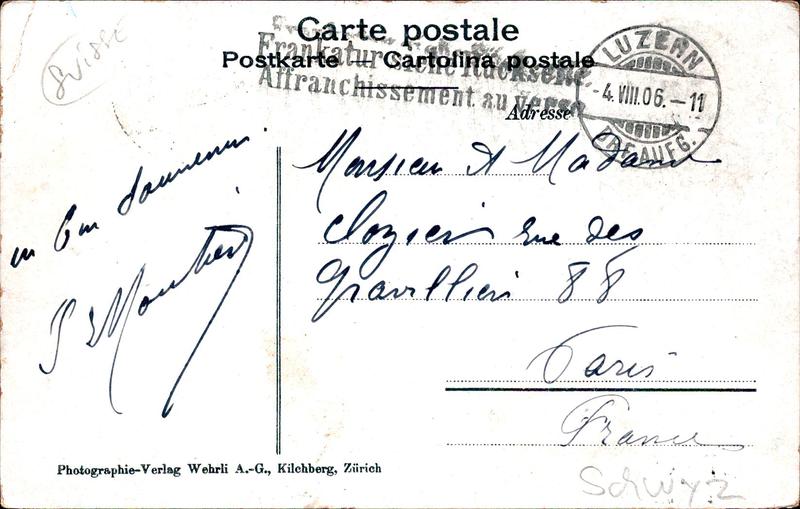 Carte postale
Postkarte — Cartolina postale
Frankatur siehe Rückseite
Affranchissement au verso
Adresse
LUZERN
-4.VIII.06.-11
BRFAUFG.
Suisse
un bon souvenir.
Monsieur et Madame
Clozier rue des
Gravilliers 88
Paris
France
Photographie-Verlag Wehrli A.-G., Kilchberg, Zürich
Schwyz